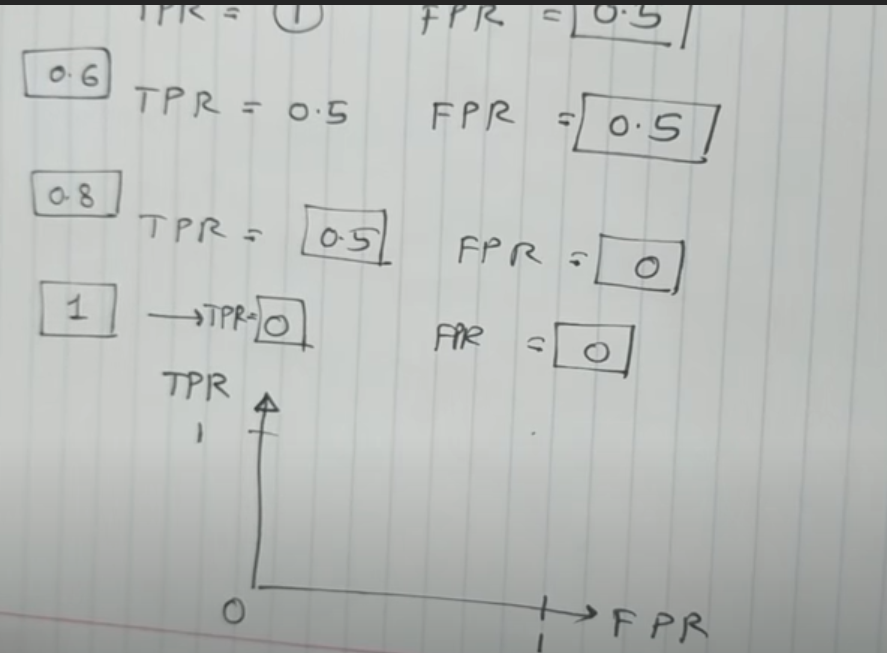 TPR = 1 FPR = 0.5
0.6 TPR = 0.5 FPR = 0.5
0.8 TPR = 0.5 FPR = 0
1 → TPR = 0 FPR = 0
TPR
1
0 FPR
1